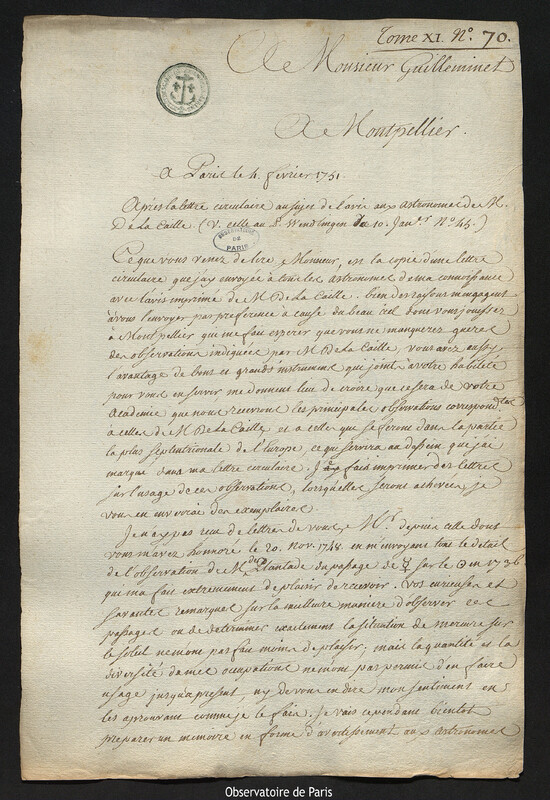 Tome XI. N.° 70.
A Monsieur Guilleminet
A Montpellier.
A Paris le 4. fevrier 1751.
Après la lettre circulaire au sujet de l'avis aux astronomes de M.
De la Caille. (V. celle au P. Wendlingen du 10. Janv.er N.° 45.)
OBSERVATOIRE DE PARIS
Ce que vous venez de lire, Monsieur, est la copie d'une lettre
circulaire que j'ay envoyée à tous les astronomes de ma connoissance
avec l'avis imprimé de M. De la Caille. bien des raisons m'engagent
à vous l'envoyer par preference à cause du beau ciel dont vous jouissez
à Montpellier qui me fait esperer que vous ne manquerez guere
des observations indiquées par M. De la Caille, vous avez aussy
l'avantage de bons et grands instrumens qui joints à votre habileté
pour vous en servir me donnent lieu de croire que ce sera de votre
Academie que nous recevrons les principales observations correspond.tes
à celles de M. De la Caille et a celles qui se feront dans la partie
la plus septentrionale de l'Europe, ce qui servira au dessein que j'ai
marqué dans ma lettre circulaire. J'ai fait imprimer des lettres
sur l'usage de ces observations, lorsqu'elles seront achevées je
vous en envoirai des exemplaires.
Je n'ay pas recu de lettres de vous, M.r depuis celle dont
vous m'avez honnoré le 20. Nov. 1748. en m'envoyant tout le detail
de l'observation de M. du Plantade du passage de ☿ sur le ☉ en 1736
qui m'a fait extremement de plaisir de recevoir. Vos curieuses et
savantes remarques sur la meilleure maniere d'observer ces
passages ou de determiner exactement la situation de mercure sur
le soleil ne m'ont pas fait moins de plaisir, mais la quantité et la
diversité de mes occupations ne m'ont pas permis d'en faire
usage jusqu'a present, ny de vous en dire mon sentiment en
les aprouvant comme je le fais. Je vais cependant bientot
preparer un memoire en forme d'avertissement aux astronomes
Observatoire de Paris